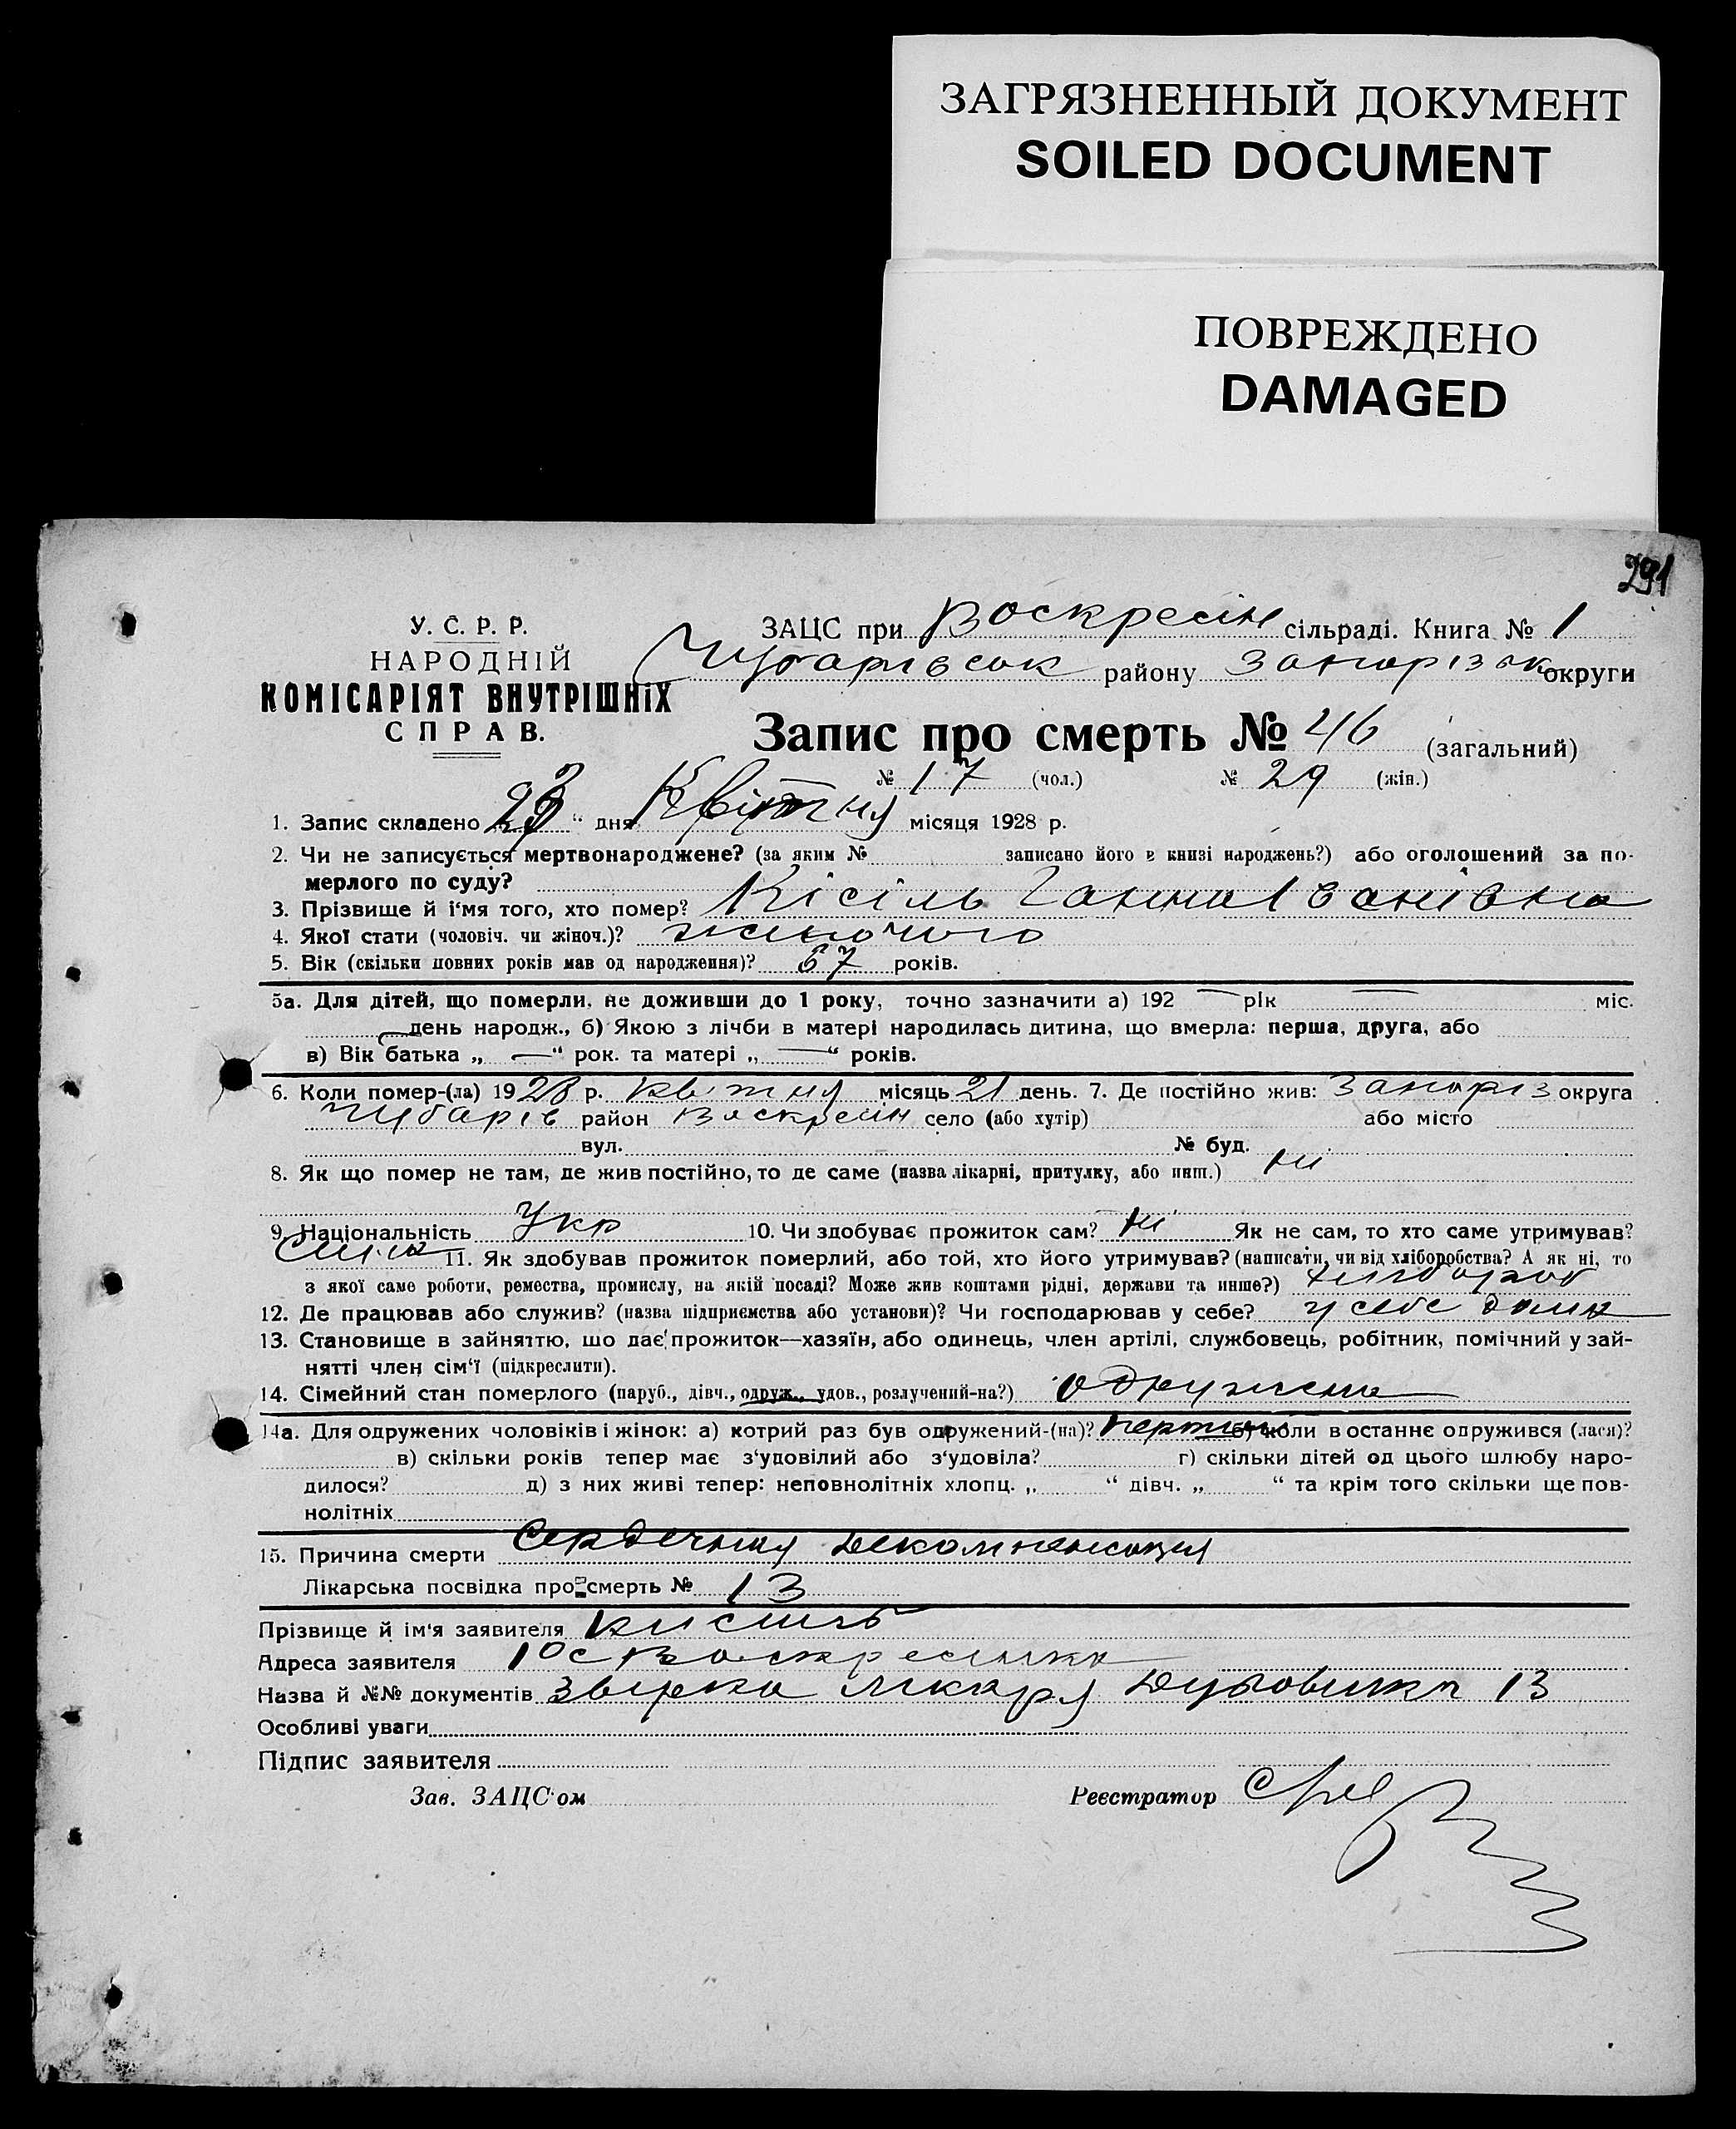 ЗАГРЯЗНЕННЫЙ ДОКУМЕНТ
SOILED DOCUMENT
ПОВРЕЖДЕНО
DAMAGED
291
У. С. Р. Р.
НАРОДНІЙ
КОМІСАРІЯТ ВНУТРІШНІХ
СПРАВ.
ЗАЦС при Воскресін сільраді. Книга № 1
Чубарівськ району Запорізьк округи
Запис про смерть № 46 (загальний)
№ 17 (чол.) № 29 (жін.)
1. Запис складено 23 " дня Квітня місяця 1928 р.
2. Чи не записується мертвонароджене? (за яким № записано його в книзі народжень?) або оголошений за по-
мерлого по суду?
3. Прізвище й і'мя того, хто помер? Кісіль Ганна Іванівна
4. Якої стати (чоловіч. чи жіноч.)? жіночого
5. Вік (скільки повних років мав од народження)? 67 років.
5а. Для дітей, що померли, не доживши до 1 року, точно зазначити а) 192 — рік — міс.
— день народж., б) Якою з лічби в матері народилась дитина, що вмерла: перша, друга, або
в) Вік батька „ — " рок. та матері „ — " років.
6. Коли помер-(ла) 1928 р. квітня місяць 21 день. 7. Де постійно жив: Запоріз округа
Чубарів район Воскресін село (або хутір) або місто
вул. № буд.
8. Як що помер не там, де жив постійно, то де саме (назва лікарні, притулку, або инш.) ні
9. Національність Укр 10. Чи здобуває прожиток сам? ні Як не сам, то хто саме утримував?
11. Як здобував прожиток померлий, або той, хто його утримував? (написати, чи від хліборобства? А як ні, то
з якої саме роботи, ремества, промислу, на якій посаді? Може жив коштами рідні, держави та инше?) хлібороб
12. Де працював або служив? (назва підприємства або установи)? Чи господарював у себе? у себе дома
13. Становище в зайняттю, що дає прожиток—хазяїн, або одинець, член артілі, службовець, робітник, помічний у зай-
нятті член сім'ї (підкреслити).
14. Сімейний стан померлого (паруб., дівч., одруж., удов., розлучений-на?) одружена
14а. Для одружених чоловіків і жінок: а) котрий раз був одружений-(на)? б) коли востаннє одружився (лася)?
в) скільки років тепер має з'удовілий або з'удовіла? г) скільки дітей од цього шлюбу наро-
дилося? д) з них живі тепер: неповнолітніх хлопц. „ " дівч. „ " та крім того скільки ще пов-
нолітніх
15. Причина смерти Сердечная декомпенсация
Лікарська посвідка про смерть № 13
Прізвище й ім'я заявителя Кисиль
Адреса заявителя с Воскресинка
Назва й №№ документів лікаря 13
Особливі уваги
Підпис заявителя
Зав. ЗАЦС'ом Реєстратор